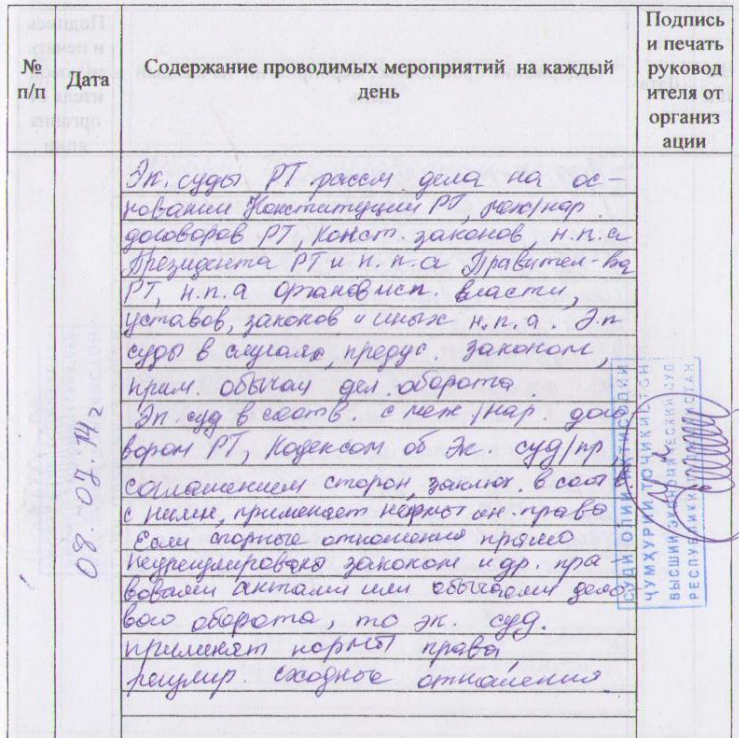 № п/п
Дата
Содержание проводимых мероприятий на каждый
день
Подпись
и печать
руковод
ителя от
организ
ации
08.07.14г
Эк. суды РТ рассм дела на ос-
новании Конституции РТ, меж/нар.
договоров РТ, конст. законов, н.п.а
Президента РТ и н.п.а Правител-ва
РТ, н.п.а органов исп. власти,
уставов, законов и иных н.п.а. Эк
суды в случаях, предус. законом,
прим. обычаи дел. оборота.
Эк. суд в соотв. с меж/нар. дого
вором РТ, Кодексом об Эк. суд/пр
соглашением сторон, заключ. в соотв
с ними, применяет нормы ин. права
Если спорные отношения прямо
неурегулированы законом и др. пра
вовыми актами или обычаями дело
вого оборота, то эк. суд.
применят нормы права
регулир. сходные отношения
СУДИ ОЛИИ ИҚТИСОДИИ
ҶУМҲУРИИ ТОҶИКИСТОН
ВЫСШИЙ ЭКОНОМИЧЕСКИЙ СУД
РЕСПУБЛИКИ ТАДЖИКИСТАН